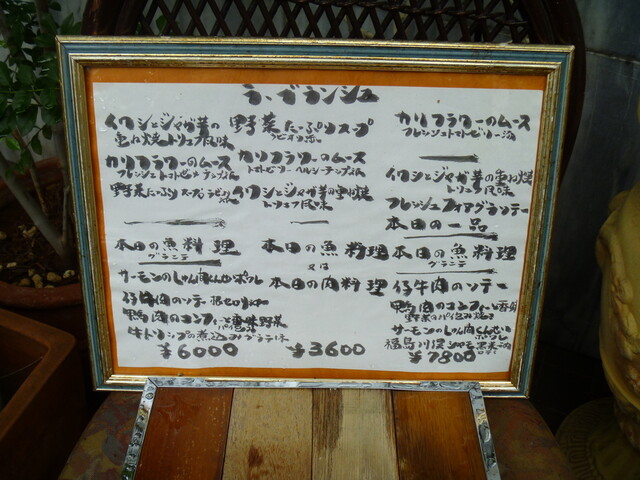 ラ、ブランシュ
イワシとジャガ芋の
重ね焼トリュフ風味
カリフラワーのムース
フレッシュトマトピューレ
野菜たっぷりスープ
本日の魚料理
グラニテ
サーモンの
仔牛肉のソテー
鴨肉のコンフィ
牛トリップの煮込みグラチネ
￥6000
野菜たっぷりスープ
カリフラワーのムース
イワシとジャガ芋の重ね焼
トリュフ風味
本日の魚料理
又は
本日の肉料理
￥3600
カリフラワーのムース
フレッシュトマトピューレ
イワシとジャガ芋の重ね焼
トリュフ風味
フレッシュフォアグラソテー
本日の一品
本日の魚料理
グラニテ
仔牛肉のソテー
鴨肉のコンフィ
野菜のパイ包み焼き
サーモンの
福島川俣シャモ
￥7800